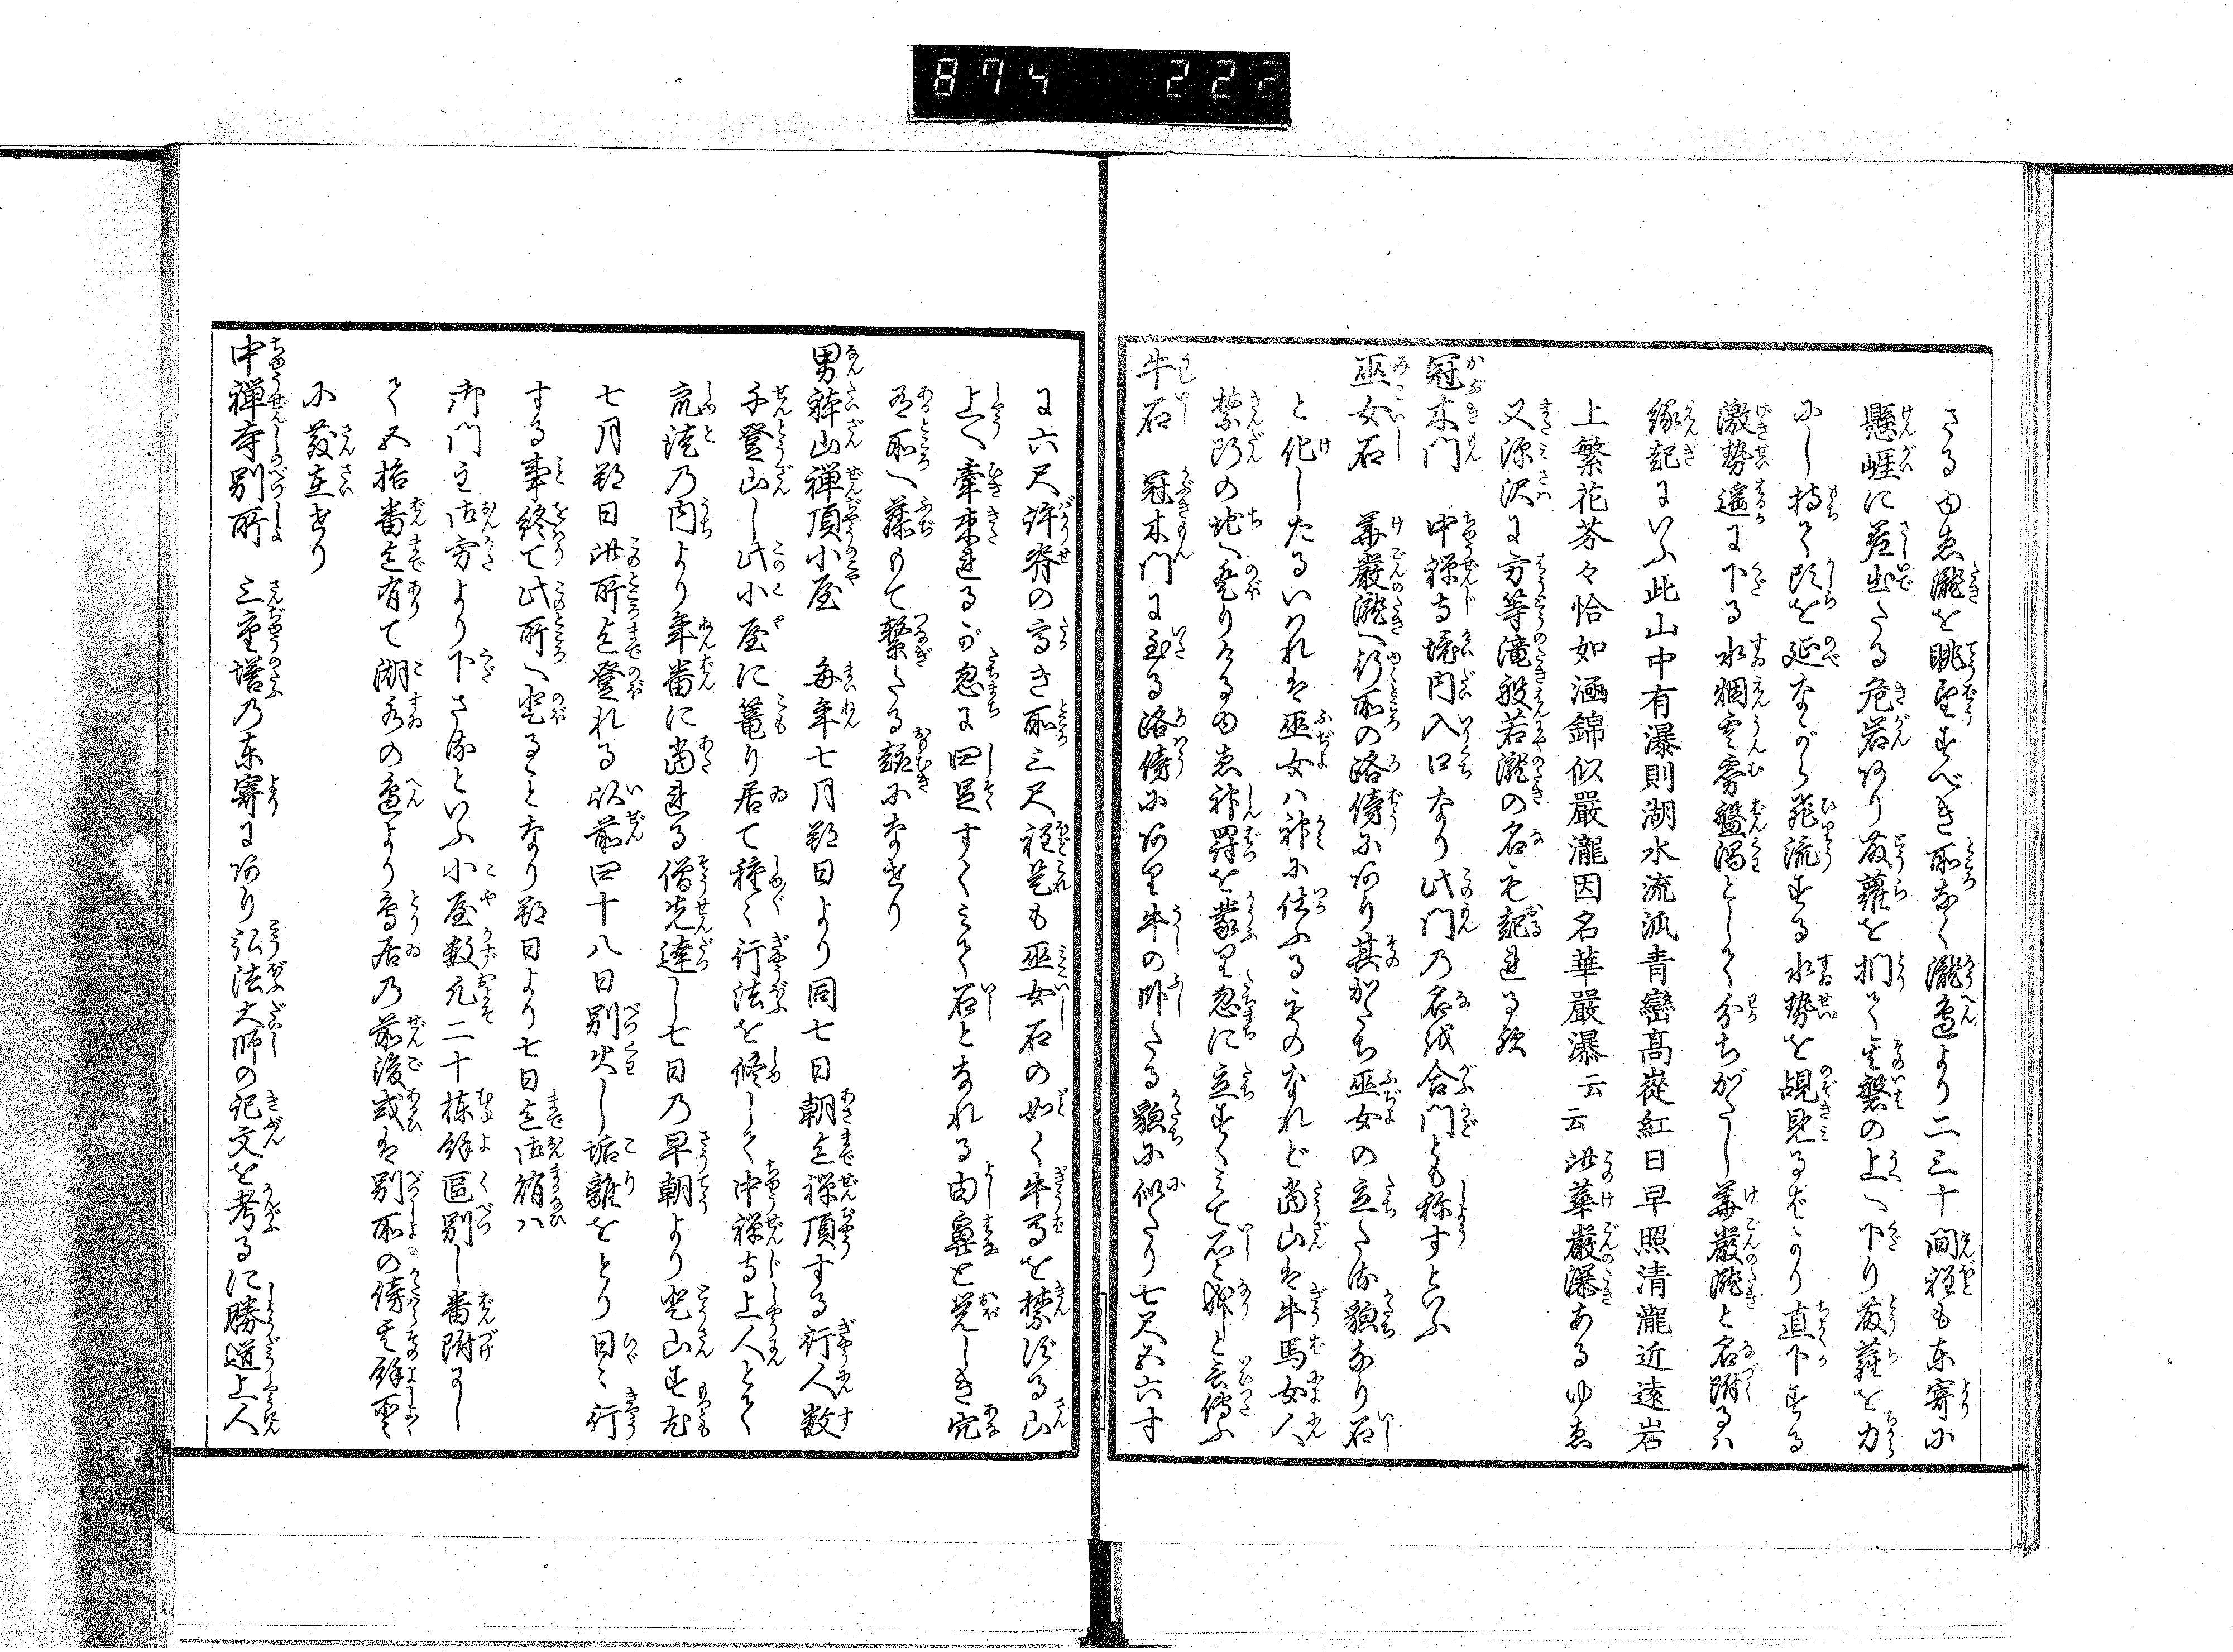 874 222
さる由ゑ瀧を眺望すべき所なく瀧邉より二三十間程も東寄に
懸崖に差出たる危岩あり藤蘿を捫て其磐の上へ下り藤蘿を力
にし持て頭を延ながら飛流する水勢を覘見るばかり直下する
激勢遥に下る水烟雲雾盤渦として分ちがたし華厳瀧と名附るハ
縁起にいふ此山中有瀑則湖水流派青巒髙嶐紅日早照清瀧近遠岩
上繁花芬々恰如涵錦似嚴瀧因名華嚴瀑云云此華嚴瀑あるゆゑ
又源沢に方等滝般若瀧の名も起れる歟
冠木門　中禅寺境内入口なり此門乃名を合門とも称すといふ
巫女石　華嚴瀧へ行所の路傍にあり其かたち巫女の立たる貌なり石
と化したるいはれは巫女ハ神に仕ふるものなれど當山は牛馬女人
禁断の地へ登りける由ゑ神罸を蒙り忽に立すくみて石と成しと言傳ふ
牛石　冠木門に至る路傍にあり牛の卧たる貌に似たり七尺五六寸
に六尺許脊の高き所三尺程是も巫女石の如く牛馬を禁ずる山
上へ牽来れるが忽に四足すくみて石となれる由鼻と覚しき穴
有所へ藤もて繋たる趣になせり
男躰山禅頂小屋　毎年七月朔日より同七日朝迄禅頂する行人数
千登山し此小屋に篭り居て種々行法を修して中禅寺上人とて
衆徒乃内より年番に當れる僧先達し七日乃早朝より登山す尤
七月朔日此所迄登れる以前四十八日別火し垢離をとり日々行
する事終て此所へ登ることなり朔日より七日迄御賄ハ
御門主御方より下さるといふ小屋数凡二十棟餘區別し番附にし
て五拾番迄有て湖水の邉より鳥居乃前後或は別所の傍其餘所々
に散在せり
中禅寺別所　三重塔乃東寄にあり弘法大師の記文を考るに勝道上人